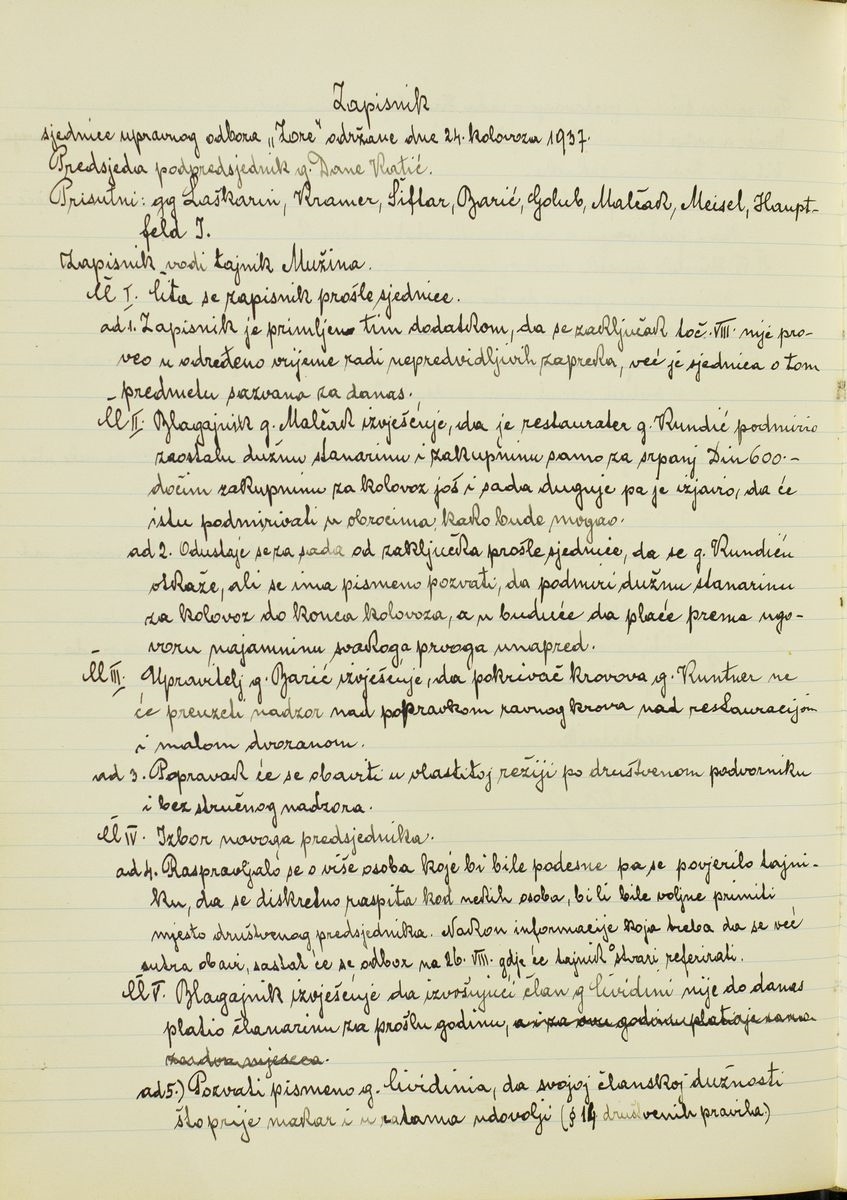 Zapisnik
sjednice upravnog odbora „Zore" održane dne 24. kolovoza 1937.
Predsjeda podpredsjednik g. Dane Katić.
Prisutni: gg Laškarin, Kramer, Šiftar, Barić, Golub, Malčak, Meisel, Haupt-
feld I.
Zapisnik vodi tajnik Mužina.
Čl I. Čita se zapisnik prošle sjednice.
ad 1. Zapisnik je primljen tim dodatkom, da se zaključak toč. VIII. nije pro-
veo u određeno vrijeme radi nepredvidljivih zapreka, već je sjednica o tom
predmetu sazvana za danas.
Čl II. Blagajnik g. Malčak izvješćuje, da je restaurater g. Kundić podmirio
zaostalu dužnu stanarinu i zakupninu samo za srpanj Din 600.-
dočim zakupninu za kolovoz još i sada duguje pa je izjavio, da će
istu podmirivati u obrocima, kako bude mogao.
ad 2. Odustaje se za sada od zaključka prošle sjednice, da se g. Kundiću
otkaže, ali se ima pismeno pozvati, da podmiri dužnu stanarinu
za kolovoz do konca kolovoza, a u buduće da plaće prema ugo-
voru najamninu svakoga prvoga unapred.
Čl III. Upravitelj g. Barić izvješćuje, da pokrivač krovova g. Kuntner ne
će preuzeti nadzor nad popravkom ravnog krova nad restauracijom
i malom dvoranom.
ad 3. Popravak će se obaviti u vlastitoj režiji po društvenom podvorniku
i bez stručnog nadzora.
Čl IV. Izbor novoga predsjednika.
ad 4. Raspravljalo se o više osoba koje bi bile podesne pa se povjerilo tajni-
ku, da se diskretno raspita kod nekih osoba, bi li bile voljne primiti
mjesto društvenog predsjednika. Nakon informacije koja treba da se već
sutra obavi, sastat će se odbor na 26. VIII. gdje će tajnik o stvari referirati.
Čl V. Blagajnik izvješćuje da izvršujući član g Cividini nije do danas
platio članarinu za prošlu godinu, a i za ovu godinu platio je samo
za dva mjeseca.
ad 5.) Pozvati pismeno g. Cividinia, da svojoj članskoj dužnosti
što prije makar i u ratama udovolji (§ 14 društvenih pravila.)